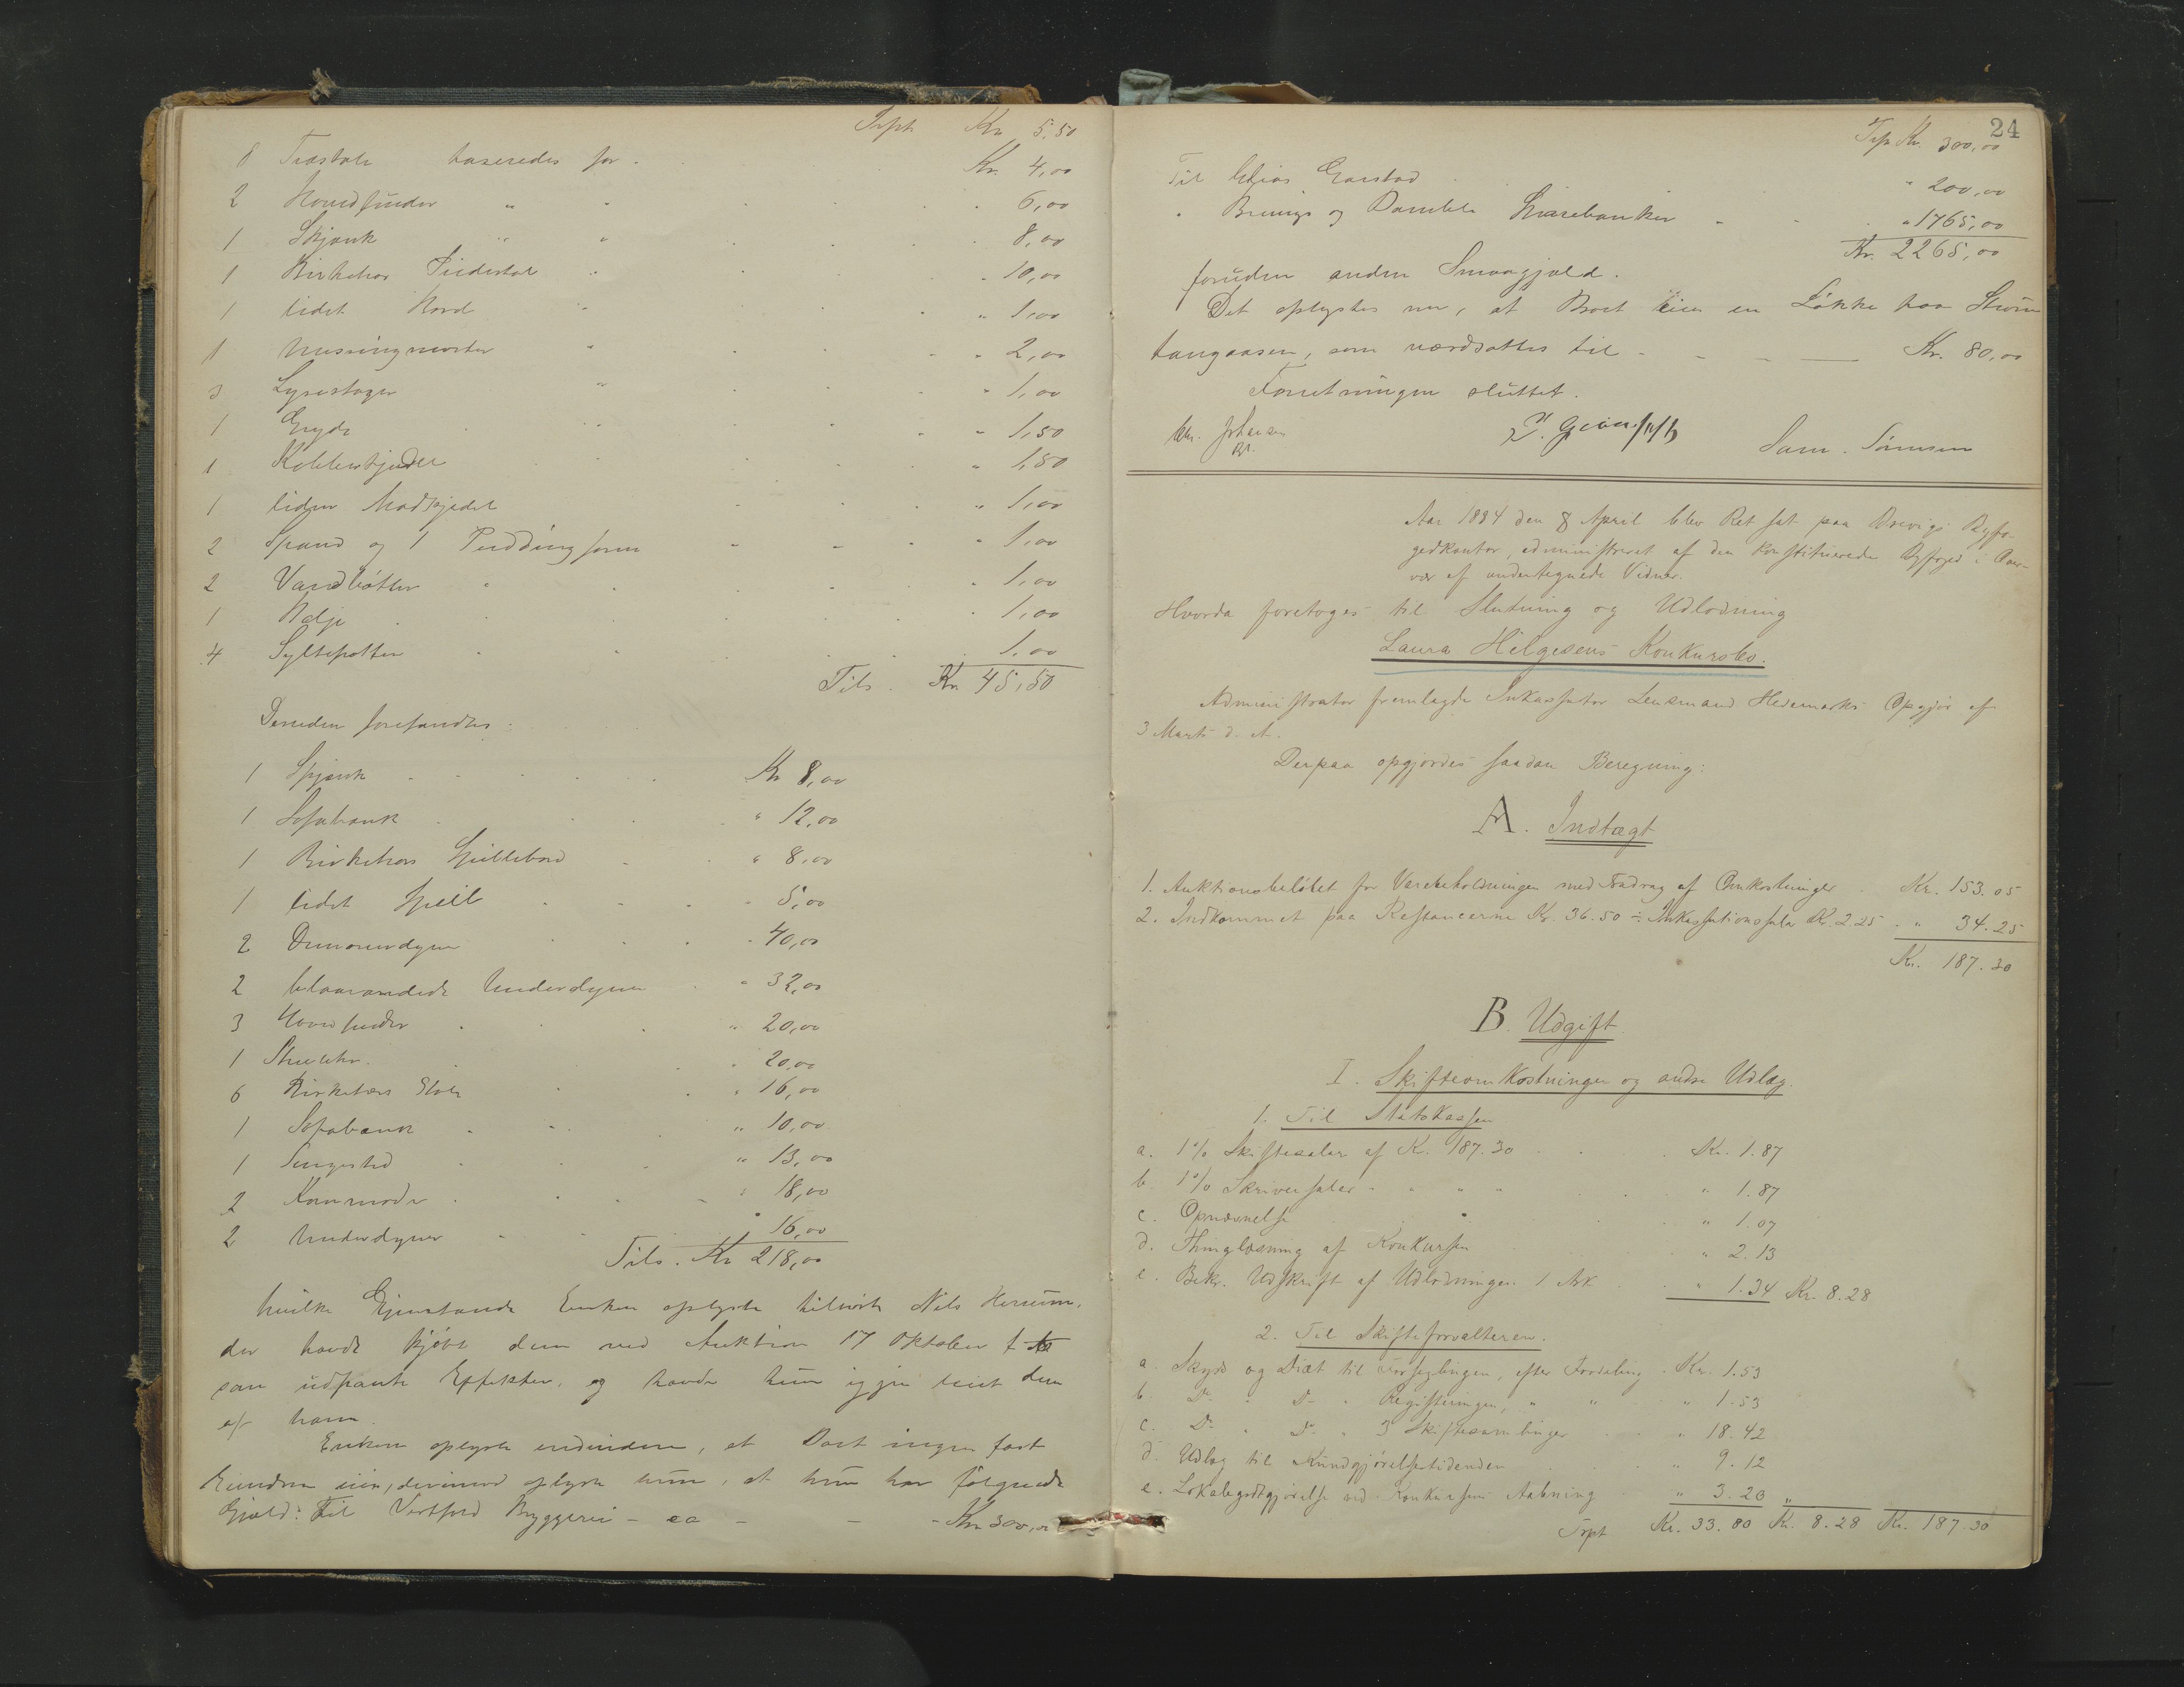 Trspt Kr 5.50
8 Træstole taxeredes for Kr. 4,00
2 Hovedpuder " " 6,00
1 Skjænk " " 8,00
1 Birketræs Piedestal " 10,00
1 lidet Bord " " 1,00
1 Messingmorter " " 2,00
3 Lysestager " " 1,00
1 Gryde " " 1,50
1 Kobberkjedel " 1,50
1 liden Madkjedel " 1,00
2 Spand og 1 Puddingform " 1,00
2 Vandbøtter " " 1,00
1 Balje " 1,00
4 Syltepotter " 1,00
Tils. Kr 45,50
Desuden forefandtes:
1 Skjænk Kr 8,00
1 Sofabænk " 12,00
1 Birketræs Spillebord " 8,00
1 lidet Speil " 5,00
2 Dunoverdyner " 40,00
2 blaarandede Underdyner " 32,00
3 Hovedpuder " 20,00
1 Stueuhr " 20,00
6 Birketræs Stole " 16,00
1 Sofabænk " 10,00
1 Sengested " 13,00
2 Kommoder " 18,00
2 Underdyner " 16,00
Tils. Kr 218,00
hvilke Gjenstande Enken oplyste tilhørte Nels
der havde kjøbt dem ved Auktion 17 Oktober f. A.
som udpante Effekter, og havde hun igjen leiet dem
af ham.
Enken oplyste endvidere, at Boet ingen fast
Eiendom eier, derimod oplyste hun, at hun har følgende
Gjæld: Til Vestfold Bryggeri – ca – – Kr 300,00
24
Trsp Kr. 300,00
Til Elias Gaustad " 200,00
" Brevigs og Bamble Sparebanker " 1765,00
Kr. 2265,00
foruden anden Smaagjæld.
Det oplystes nu, at Boet eier en Løkke paa Strøm
tangaasen, som værdsattes til Kr. 80,00
Forretningen sluttet.
Chr. Johansen
Sam. Sørensen
Aar 1884 den 8 April blev Ret sat paa Brevigs Byfo-
gedkontor, administreret af den konstituerede Byfoged i Over-
vær af undertegnede Vidner.
Hvorda foretoges til Slutning og Udlodning
Laura Helgesens Konkursbo.
Administrator fremlagde Inkassator Lensmand Hedemarks Opgjør af
3 Marts d. A.
Derpaa opgjordes saadan Beregning:
A. Indtægt
1. Auktionsbeløbet for Varebeholdningen med Fradrag af Omkostninger Kr. 153.05
2. Indkommet paa Restancerne Kr. 36.50 ÷ Inkassationssalær Kr. 2.25 " 34.25
Kr. 187.30
B. Udgift.
I. Skifteomkostninger og andre Udlæg.
1. Til Statskassen
a. 1% Skiftesalær af Kr. 187.30 Kr. 1.87
b. 1% Skriversalær " " " " 1.87
c. Opnævnelse " 1.07
d. Thinglæsning af Konkursen " 2.13
e. Bekr. Udskrift af Udlodningen 1 Ark " 1.34 Kr. 8.28
2. Til Skifteforvalteren.
a. Skyds og Diæt til Forseglingen, efter Fordeling Kr. 1.53
b. Do " Do " Registeringen, " " " 1.53
c. Do " Do " 3 Skiftesamlinger " 18.42
d. Udlæg til Kundgjørelsestidenden " 9.12
e. Lokalegodtgjørelse ved Konkursens Aabning " 3.20 "
Trspt Kr. 33.80 Kr. 8.28 Kr. 187.30